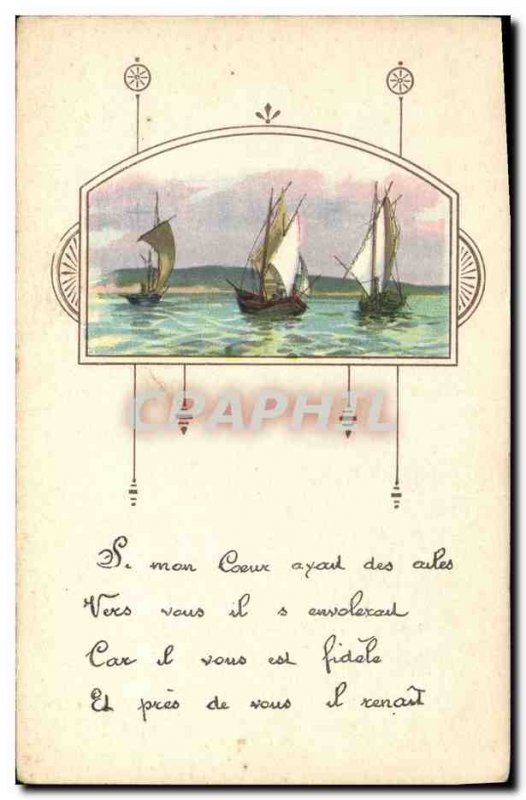 CPAPHIL
Si mon Coeur avait des ailes
Vers vous il s envolerait
Car il vous est fidèle
Et près de vous il renaît